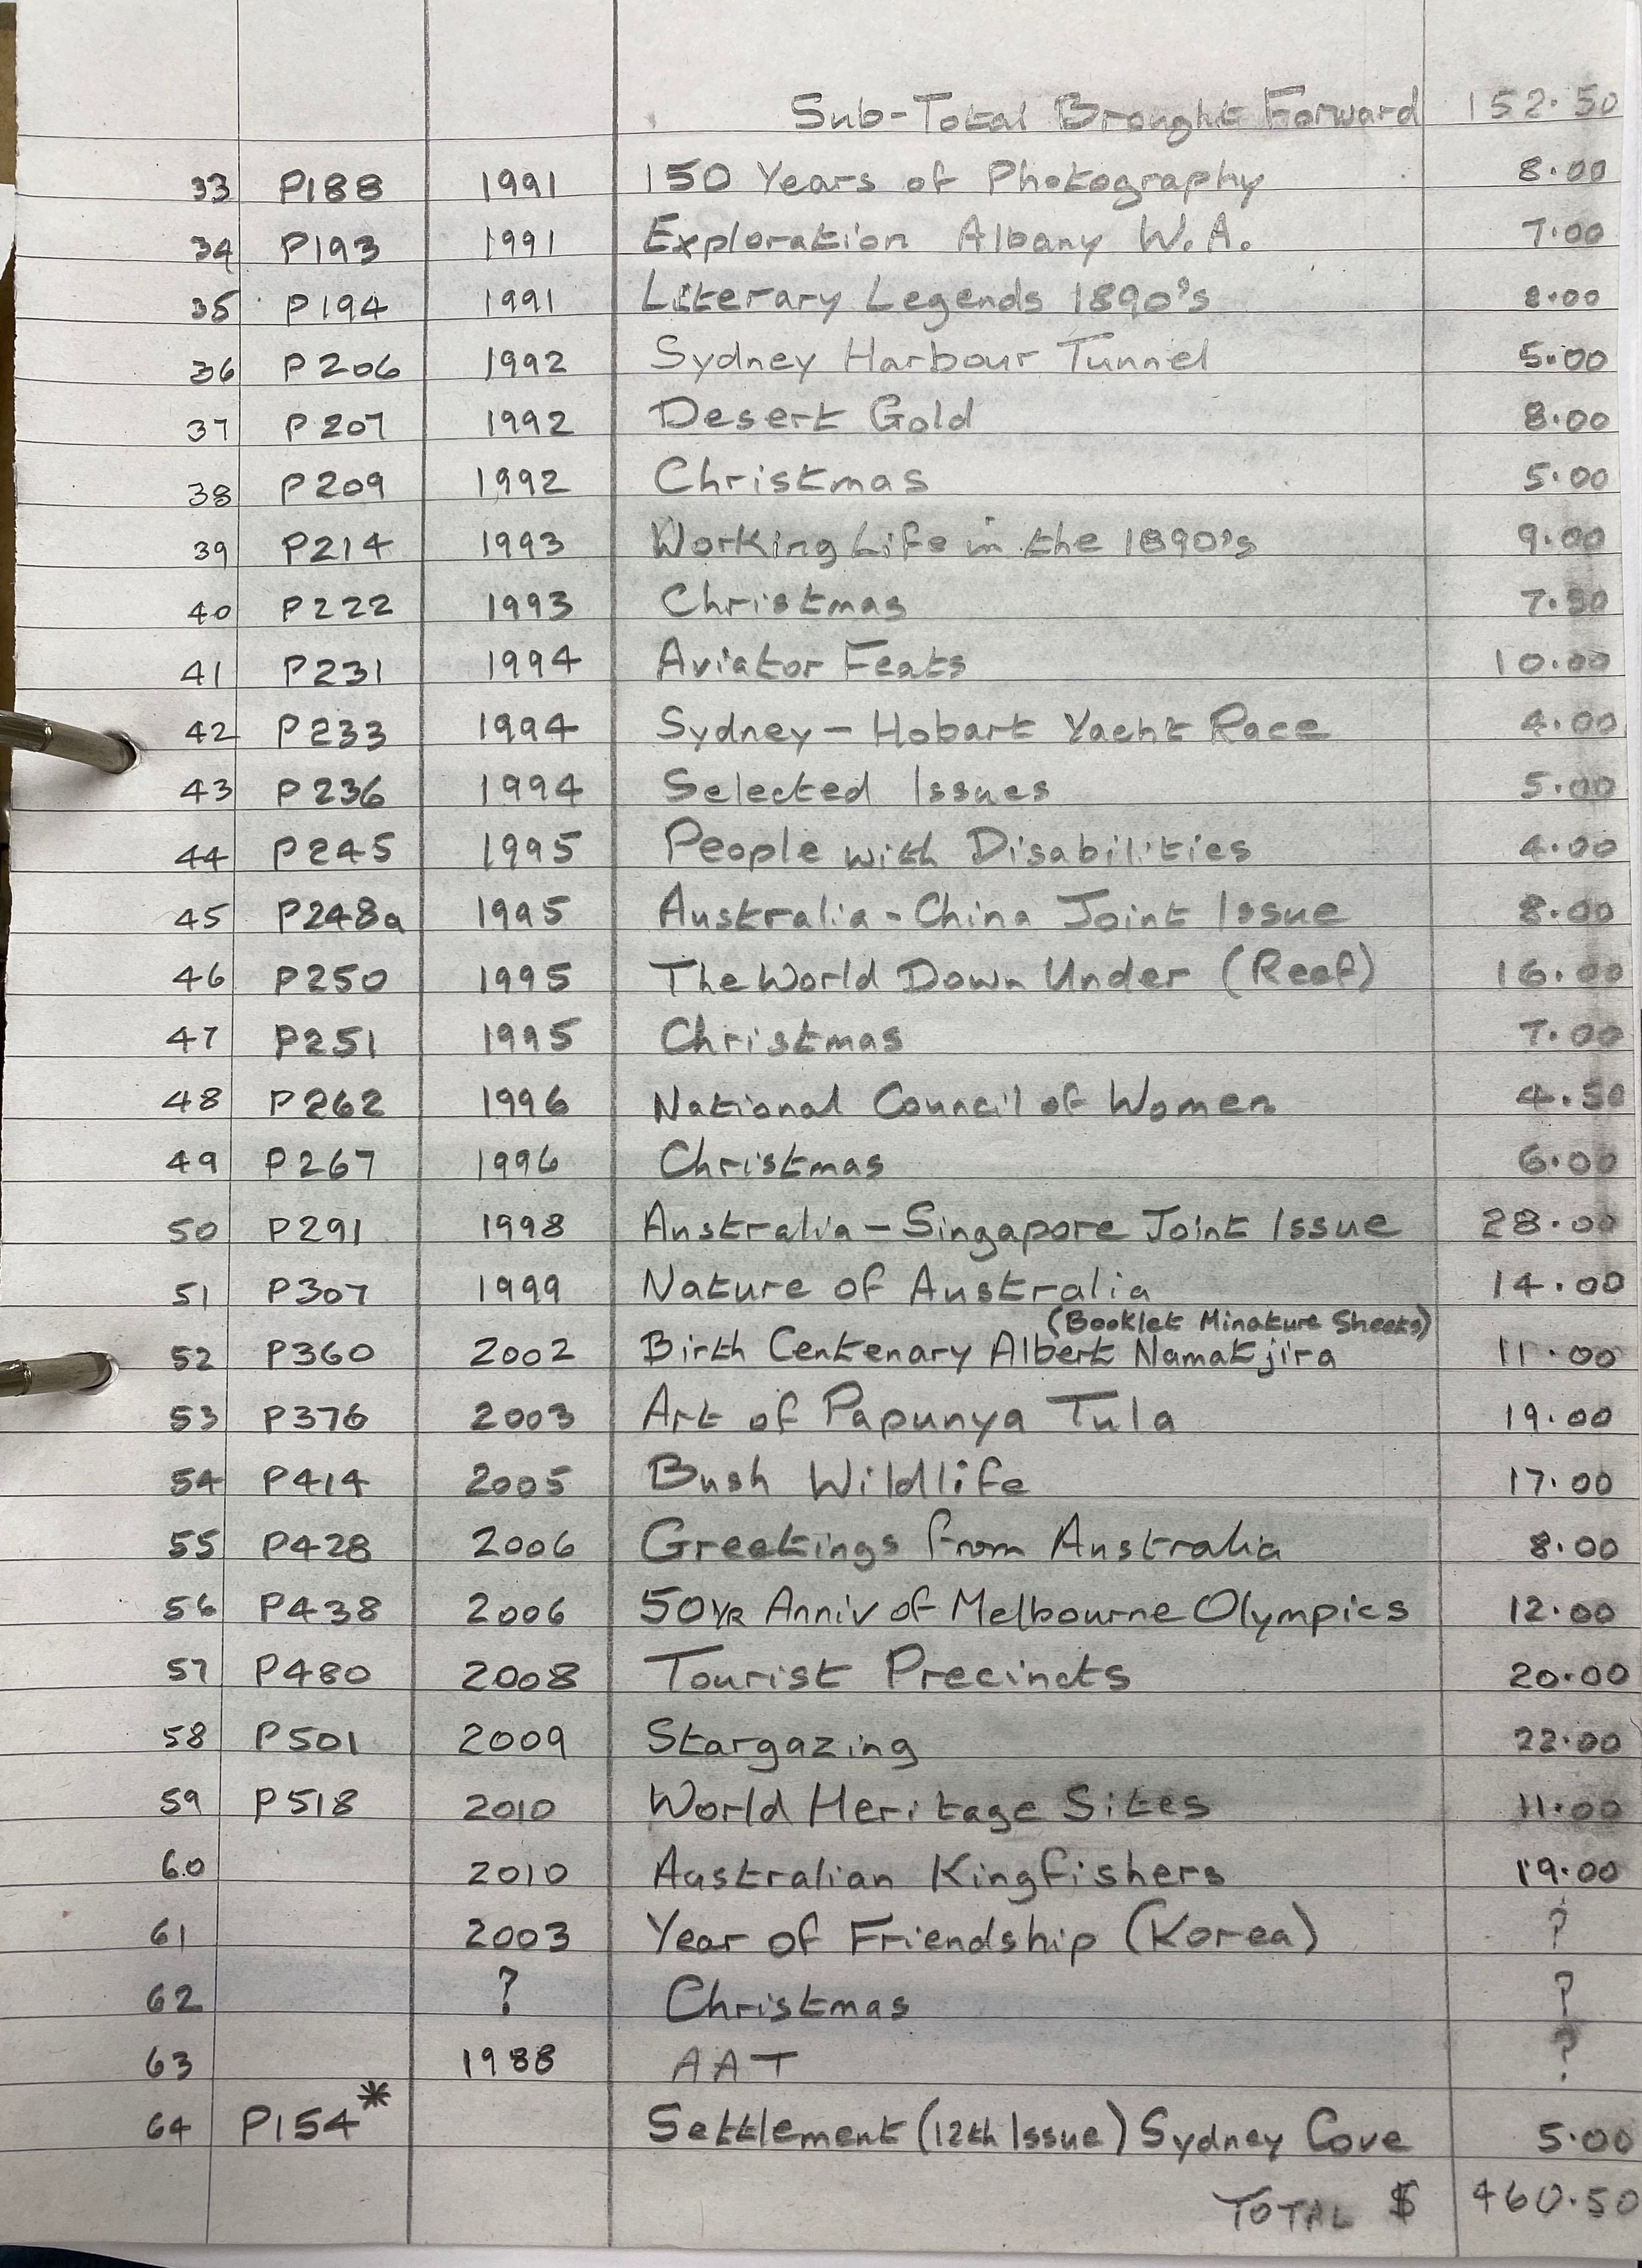 Sub-Total Brought Forward 152.50
33 P188 1991 150 Years of Photography 8.00
34 P193 1991 Exploration Albany W.A. 7.00
35 P194 1991 Literary Legends 1890's 8.00
36 P206 1992 Sydney Harbour Tunnel 5.00
37 P207 1992 Desert Gold 8.00
38 P209 1992 Christmas 5.00
39 P214 1993 Working Life in the 1890's 9.00
40 P222 1993 Christmas 7.50
41 P231 1994 Aviator Feats 10.00
42 P233 1994 Sydney - Hobart Yacht Race 4.00
43 P236 1994 Selected Issues 5.00
44 P245 1995 People with Disabilities 4.00
45 P248a 1995 Australia - China Joint Issue 8.00
46 P250 1995 The World Down Under (Reef) 16.00
47 P251 1995 Christmas 7.00
48 P262 1996 National Council of Women 4.50
49 P267 1996 Christmas 6.00
50 P291 1998 Australia - Singapore Joint Issue 28.00
51 P307 1999 Nature of Australia 14.00
(Booklet Minature Sheets)
52 P360 2002 Birth Centenary Albert Namatjira 11.00
53 P376 2003 Art of Papunya Tula 19.00
54 P414 2005 Bush Wildlife 17.00
55 P428 2006 Greetings from Australia 8.00
56 P438 2006 50YR Anniv of Melbourne Olympics 12.00
57 P480 2008 Tourist Precincts 20.00
58 P501 2009 Stargazing 22.00
59 P518 2010 World Heritage Sites 11.00
60 2010 Australian Kingfishers 19.00
61 2003 Year of Friendship (Korea) ?
62 ? Christmas ?
63 1988 AAT ?
64 P154* Settlement (12th Issue) Sydney Cove 5.00
TOTAL $ 460.50